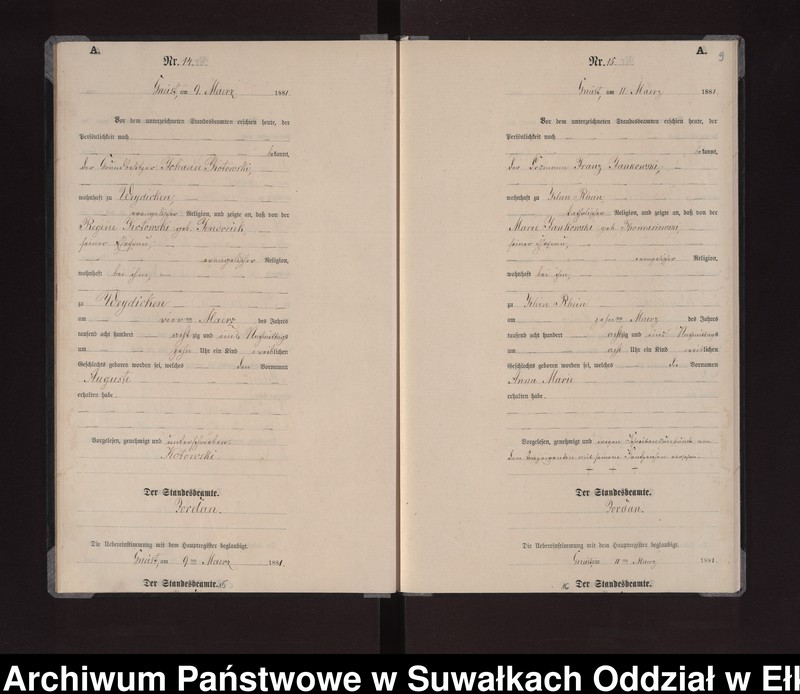 A.
Nr. 14.
9. Maerz 1881.
Vor dem unterzeichneten Standesbeamten erschien heute, der
Persönlichkeit nach
bekannt,
der Grundbesitzer Johann
wohnhaft zu Weydicken,
evangelischer Religion, und zeigte an, daß von der
Regine geb.
seiner Ehefrau,
evangelischer Religion,
wohnhaft bei ihm,
zu Weydicken
am vierten Maerz des Jahres
tausend acht hundert achtzig und eins Nachmittags
um zehn Uhr ein Kind weiblichen
Geschlechts geboren worden sei, welches den Vornamen
Auguste
erhalten habe.
Vorgelesen, genehmigt und unterschrieben.
Der Standesbeamte.
Jordan.
Die Uebereinstimmung mit dem Hauptregister beglaubigt.
am 9ten Maerz 1881.
Der Standesbeamte.
A. 9
Nr. 15.
am 11. Maerz 1881.
Vor dem unterzeichneten Standesbeamten erschien heute, der
Persönlichkeit nach
bekannt,
der Franz Jankowski,
wohnhaft zu
katholischer Religion, und zeigte an, daß von der
Marie Jankowski geb.
seiner Ehefrau,
evangelischer Religion,
wohnhaft bei ihm,
zu
am zehnten Maerz des Jahres
tausend acht hundert achtzig und eins Nachmittags
um acht Uhr ein Kind weiblichen
Geschlechts geboren worden sei, welches die Vornamen
Anna Marie
erhalten habe.
Vorgelesen, genehmigt und wegen
dem mit seinem
+ + +
Der Standesbeamte.
Jordan.
Die Uebereinstimmung mit dem Hauptregister beglaubigt.
am 11ten Maerz 1881.
Der Standesbeamte.
Archiwum Państwowe w Suwałkach Oddział w Eł